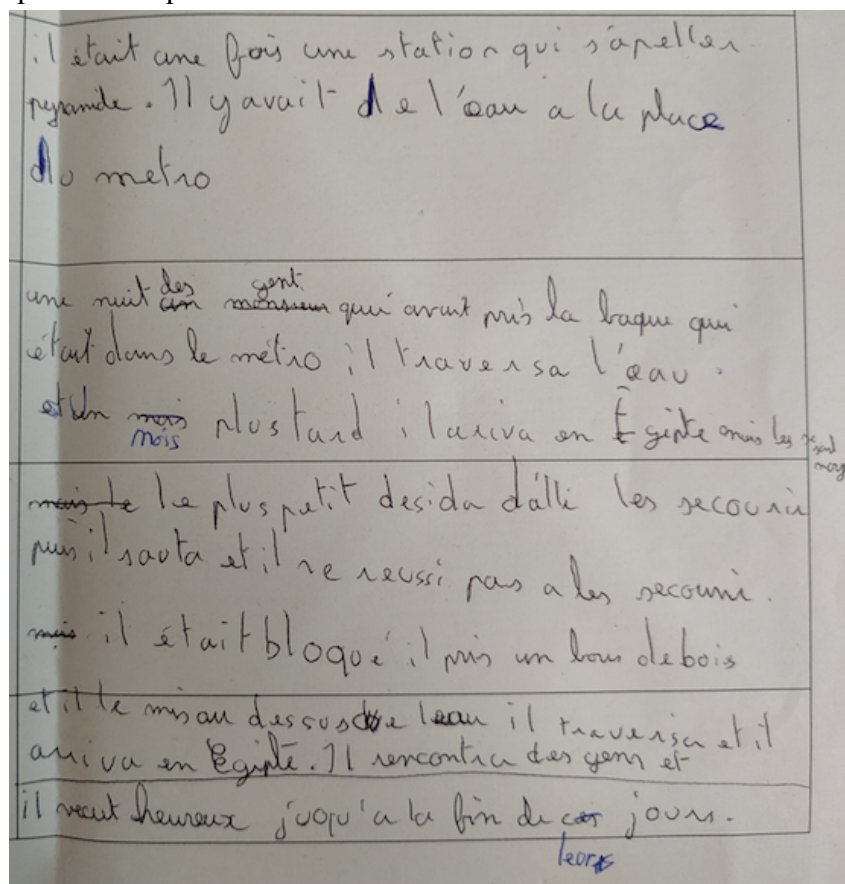 il était une fois une station qui s'apeller
pyramide. Il y avait de l'eau a la place
du metro
une nuit des gent qui avait pris la baque qui
était dans le métro il traversa l'eau.
et un mois plus tard il ariva en Égipte mais les
le plus petit desida d'alli les secourir
puis il sauta et il ne reussi pas a les secourir.
il était bloqué il pris un bous de bois
et il le mis au dessus de l'eau il traversa et il
ariva en Egipte. Il rencontra des gens et
il vecut heureux juqu'a la fin de leors jours.